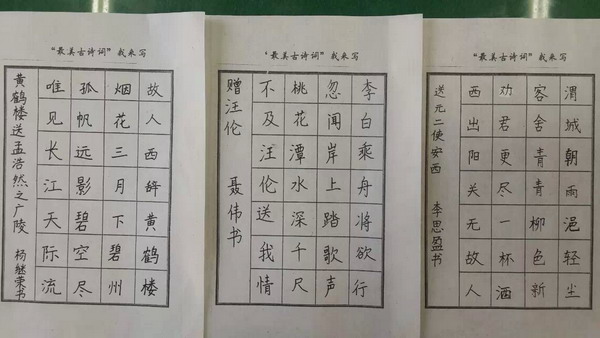 "最美古诗词"我来写
故人西辞黄鹤楼
烟花三月下碧州
孤帆远影碧空尽
唯见长江天际流
黄鹤楼送孟浩然之广陵 杨继荣书
"最美古诗词"我来写
李白乘舟将欲行
忽闻岸上踏歌声
桃花潭水深千尺
不及汪伦送我情
赠汪伦 聂伟书
"最美古诗词"我来写
渭城朝雨浥轻尘
客舍青青柳色新
劝君更尽一杯酒
西出阳关无故人
送元二使安西 李思盈书